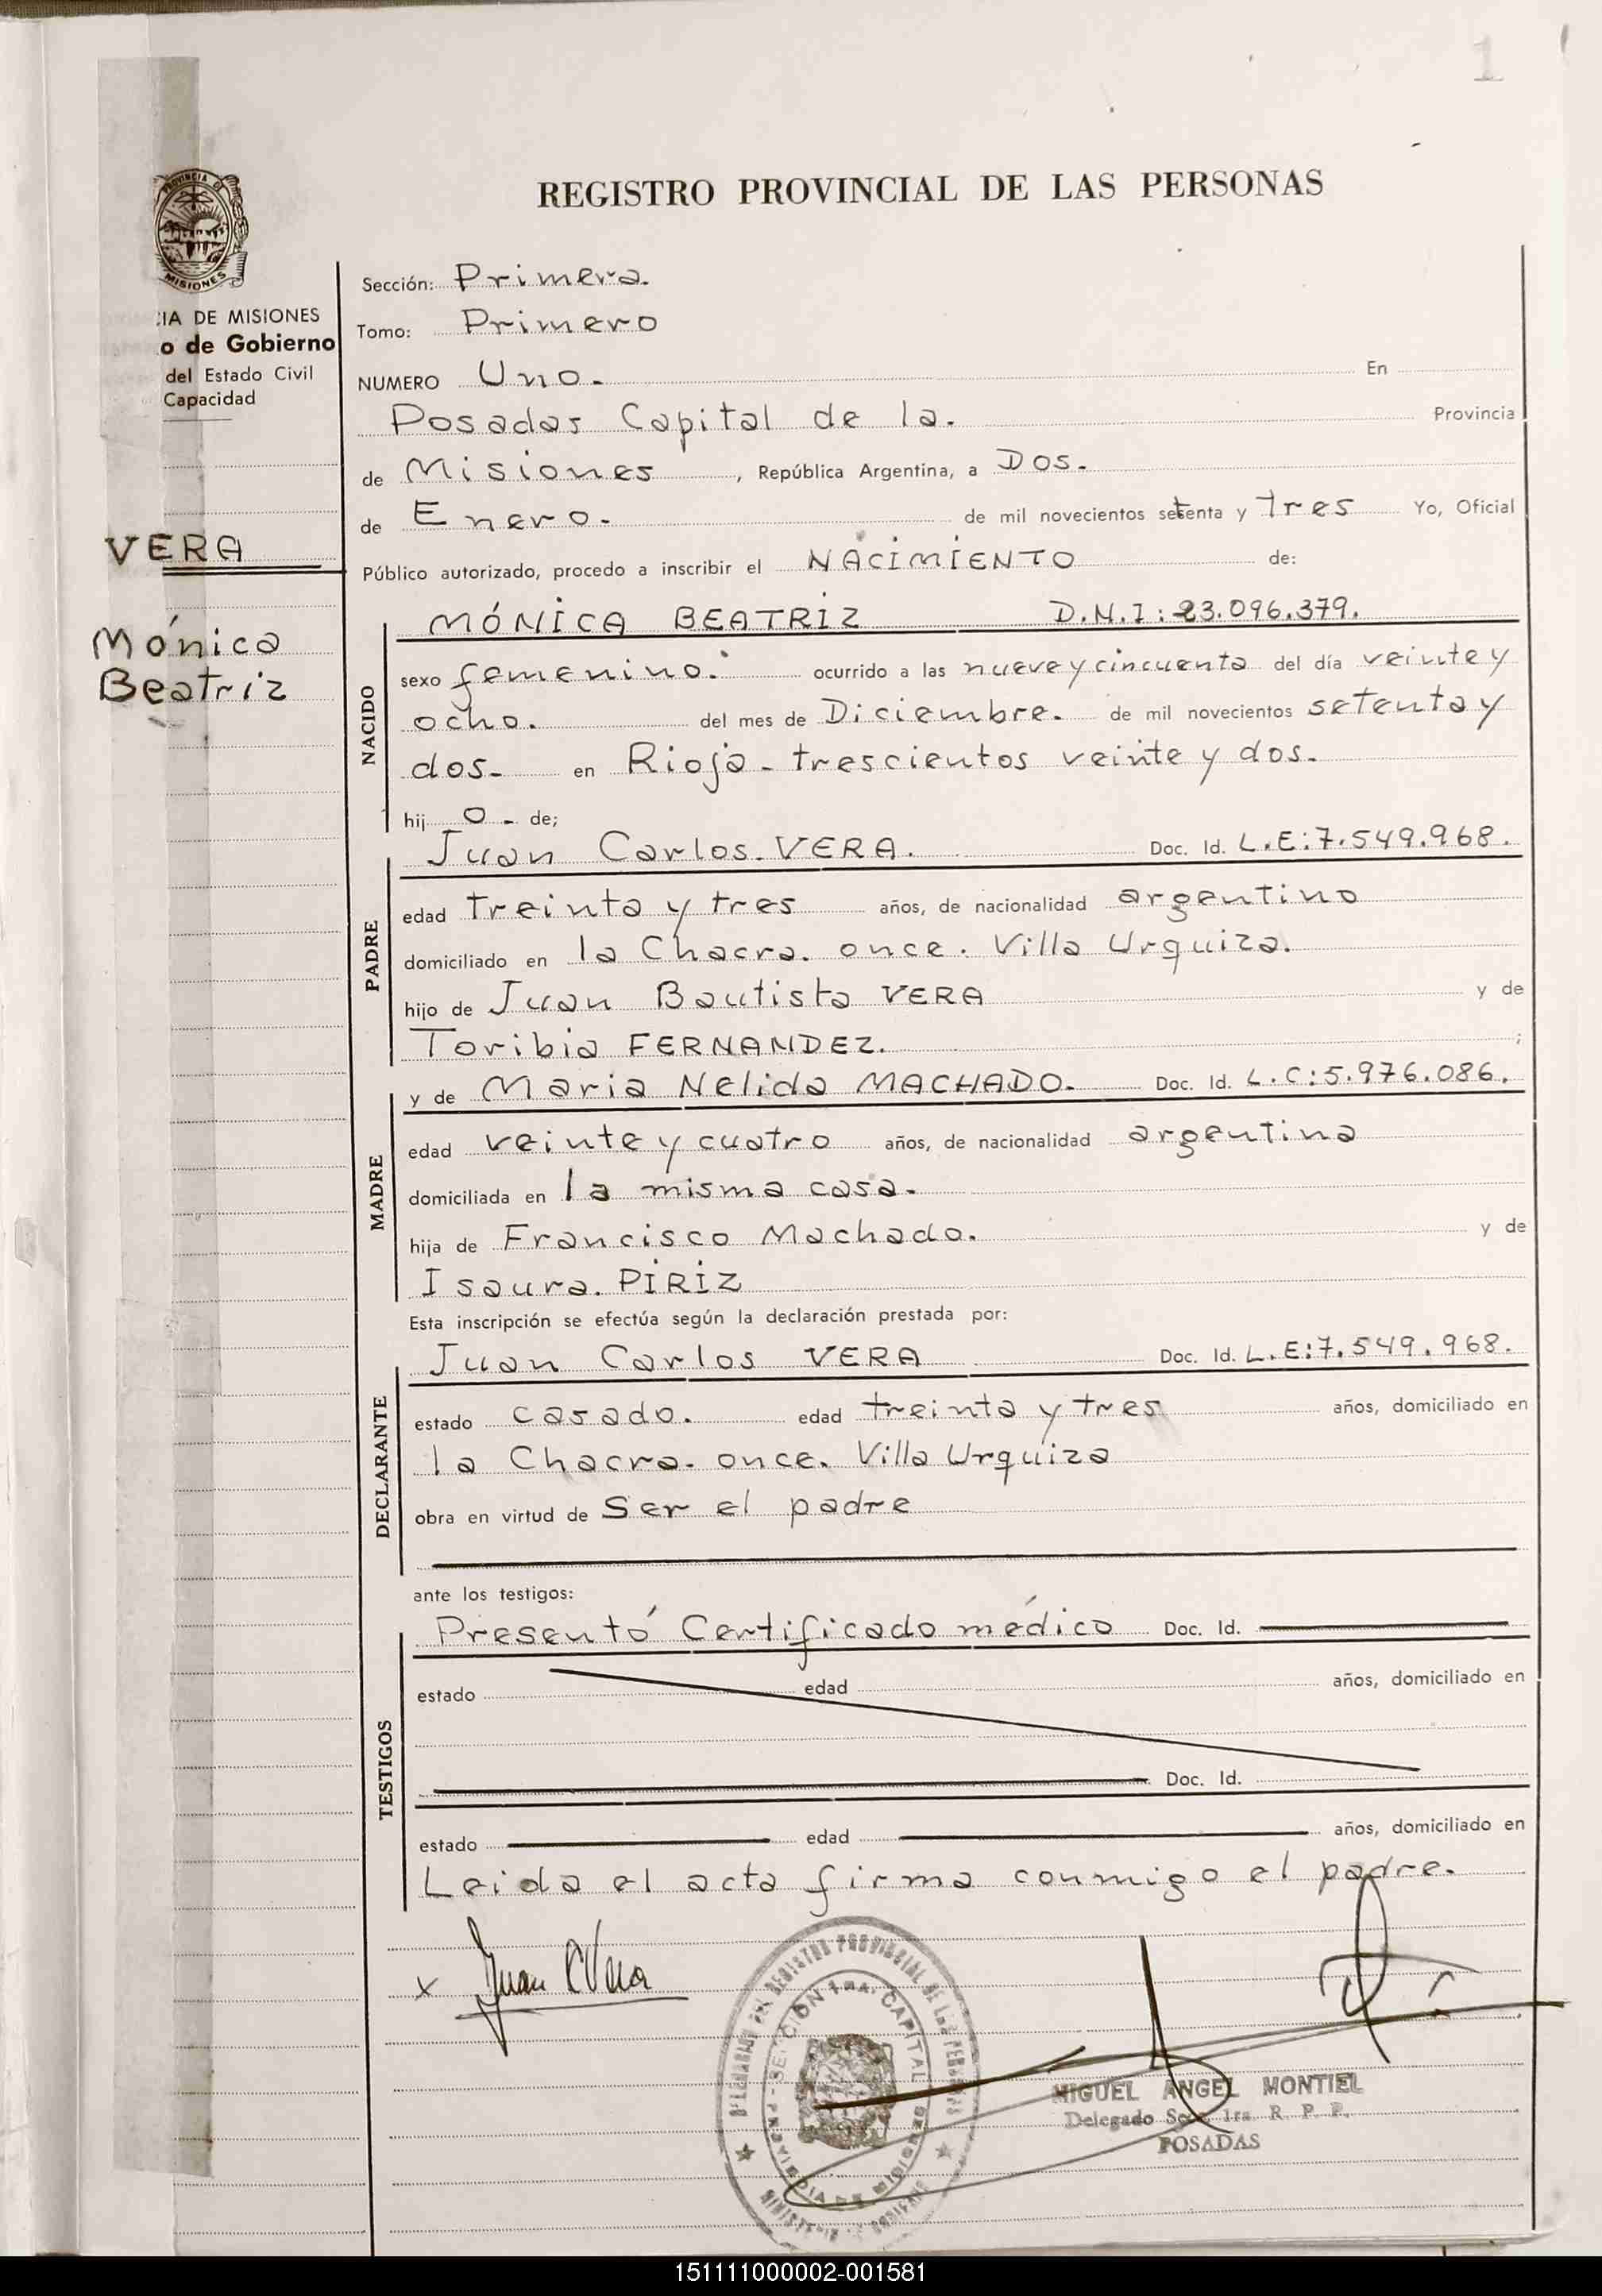 1
REGISTRO PROVINCIAL DE LAS PERSONAS
PROVINCIA DE
MISIONES
IA DE MISIONES
o de Gobierno
del Estado Civil
Capacidad
VERA
Mónica
Beatriz
Sección: Primera.
Tomo: Primero
NUMERO Uno. En
Posadas Capital de la. Provincia
de Misiones, República Argentina, a Dos.
de Enero. de mil novecientos setenta y tres Yo, Oficial
Público autorizado, procedo a inscribir el NACIMIENTO de:
NACIDO
MÓNICA BEATRIZ D.N.I: 23.096.379.
sexo femenino. ocurrido a las nueve y cincuenta del día veinte y
ocho. del mes de Diciembre. de mil novecientos setenta y
dos. en Rioja - trescientos veinte y dos.
hij o - de;
PADRE
Juan Carlos. VERA. Doc. Id. L.E:7.549.968.
edad treinta y tres años, de nacionalidad argentino
domiciliado en la Chacra. once. Villa Urquiza.
hijo de Juan Bautista VERA y de
Toribia FERNANDEZ. ;
MADRE
y de Maria Nelida MACHADO. Doc. Id. L.C:5.976.086.
edad veinte y cuatro años, de nacionalidad argentina
domiciliada en la misma casa.
hija de Francisco Machado. y de
Isaura. PIRIZ
Esta inscripción se efectúa según la declaración prestada por:
DECLARANTE
Juan Carlos VERA Doc. Id. L.E:7.549.968.
estado casado. edad treinta y tres años, domiciliado en
la Chacra. once. Villa Urquiza
obra en virtud de Ser el padre
ante los testigos:
TESTIGOS
Presentó Certificado médico Doc. Id.
estado edad años, domiciliado en
Doc. Id.
estado edad años, domiciliado en
Leida el acta firma conmigo el padre.
x Juan C Vera
REGISTRO PROVINCIAL DE LAS PERSONAS
SECCION 1ra. CAPITAL
MIGUEL ANGEL MONTIEL
Delegado Secc. 1ra. R. P. P.
POSADAS
151111000002-001581